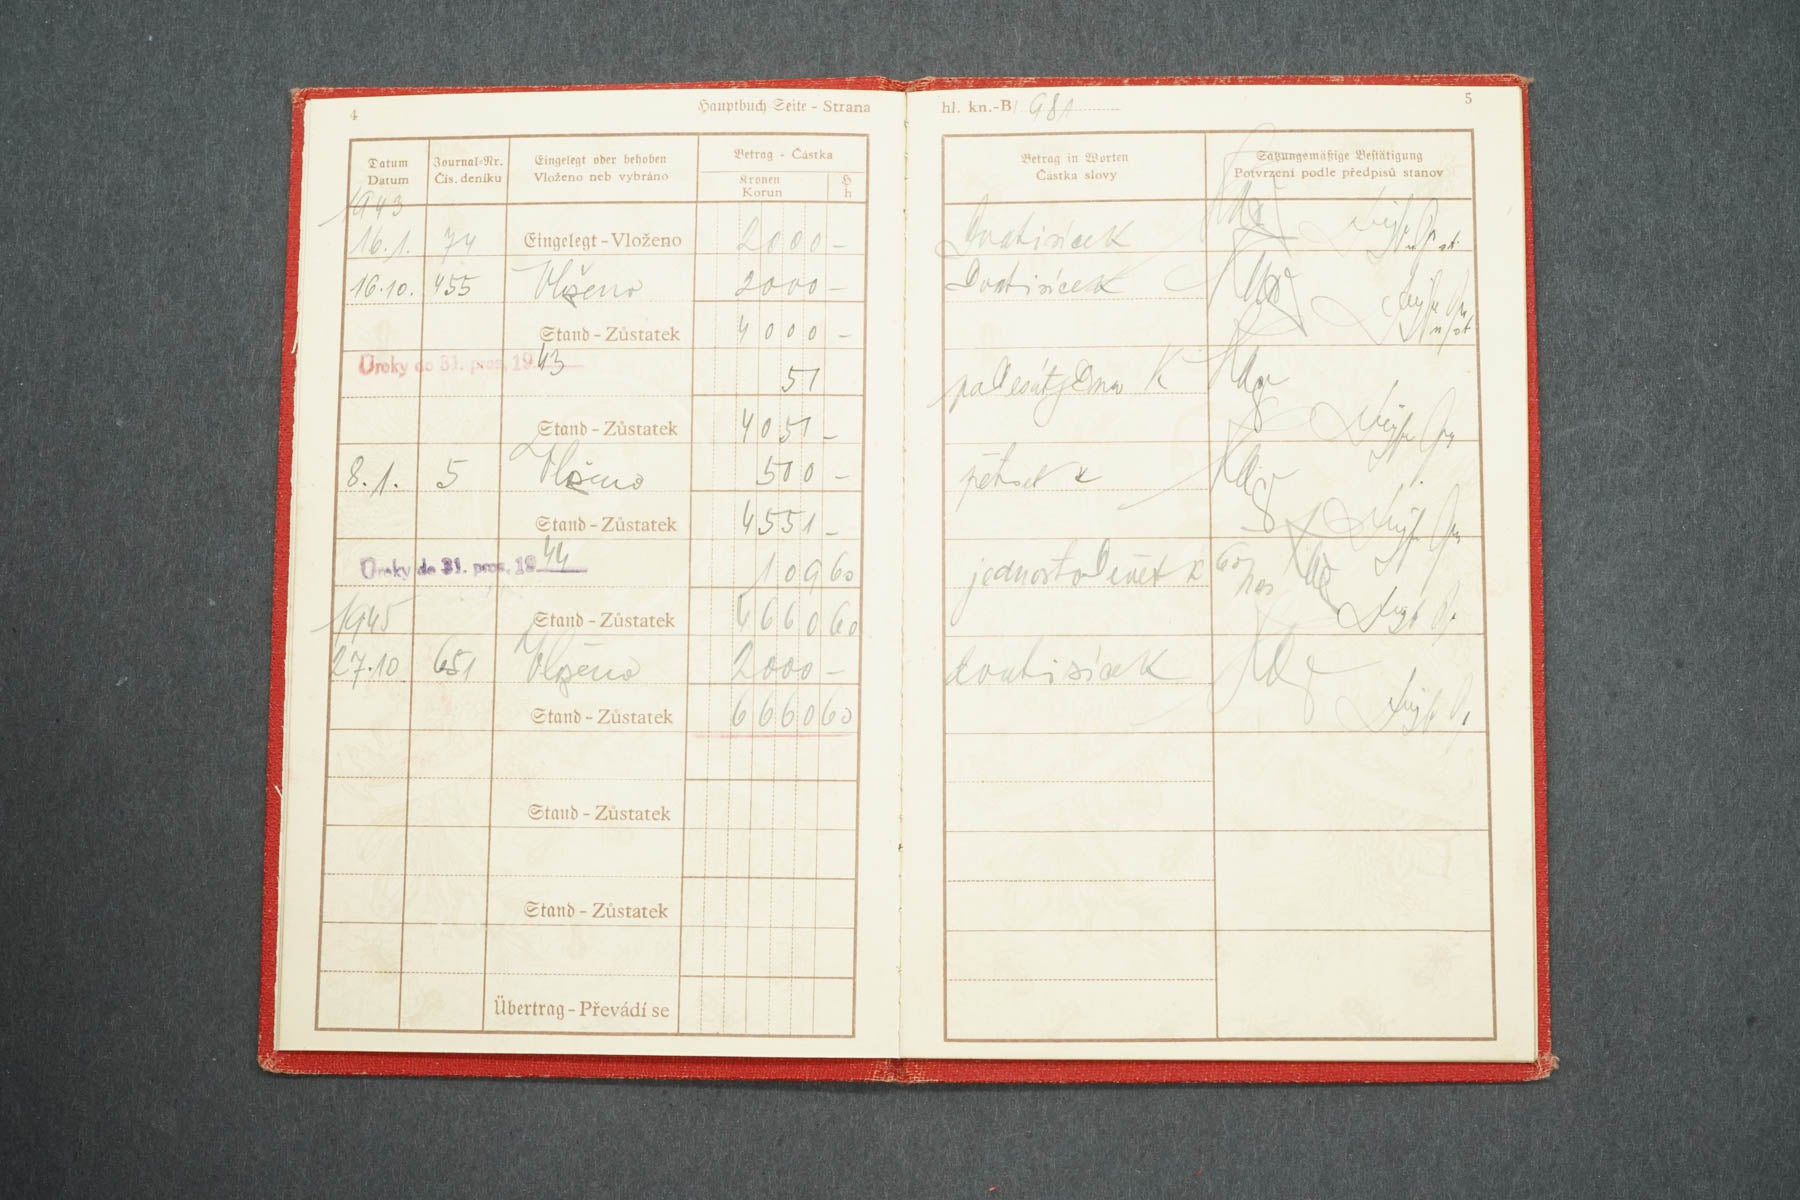 4
Hauptbuch Seite - Strana
hl. kn.-B/ 981
5
Datum
Datum
Journal-Nr.
Čís. deníku
Eingelegt oder behoben
Vloženo neb vybráno
Betrag - Částka
Kronen
Korun
H
h
Betrag in Worten
Částka slovy
Satzungsmäßige Bestätigung
Potvrzení podle předpisů stanov
1943
16.1. 74 Eingelegt - Vloženo 2000 - Dvatisíce K
16.10. 455 Vloženo 2000 - Dvatisíce K
Stand - Zůstatek 4000 -
Úroky do 31. pros. 1943
51 padesátjedna K
Stand - Zůstatek 4051 -
8.1. 5 Vloženo 500 - pětset K
Stand - Zůstatek 4551 -
Úroky do 31. pros. 1944 109 60 jednostodevět K 60
1945 Stand - Zůstatek 60
27.10 651 Vloženo 2000 - dvatisíce K
Stand - Zůstatek 6660 60
Stand - Zůstatek
Stand - Zůstatek
Übertrag - Převádí se